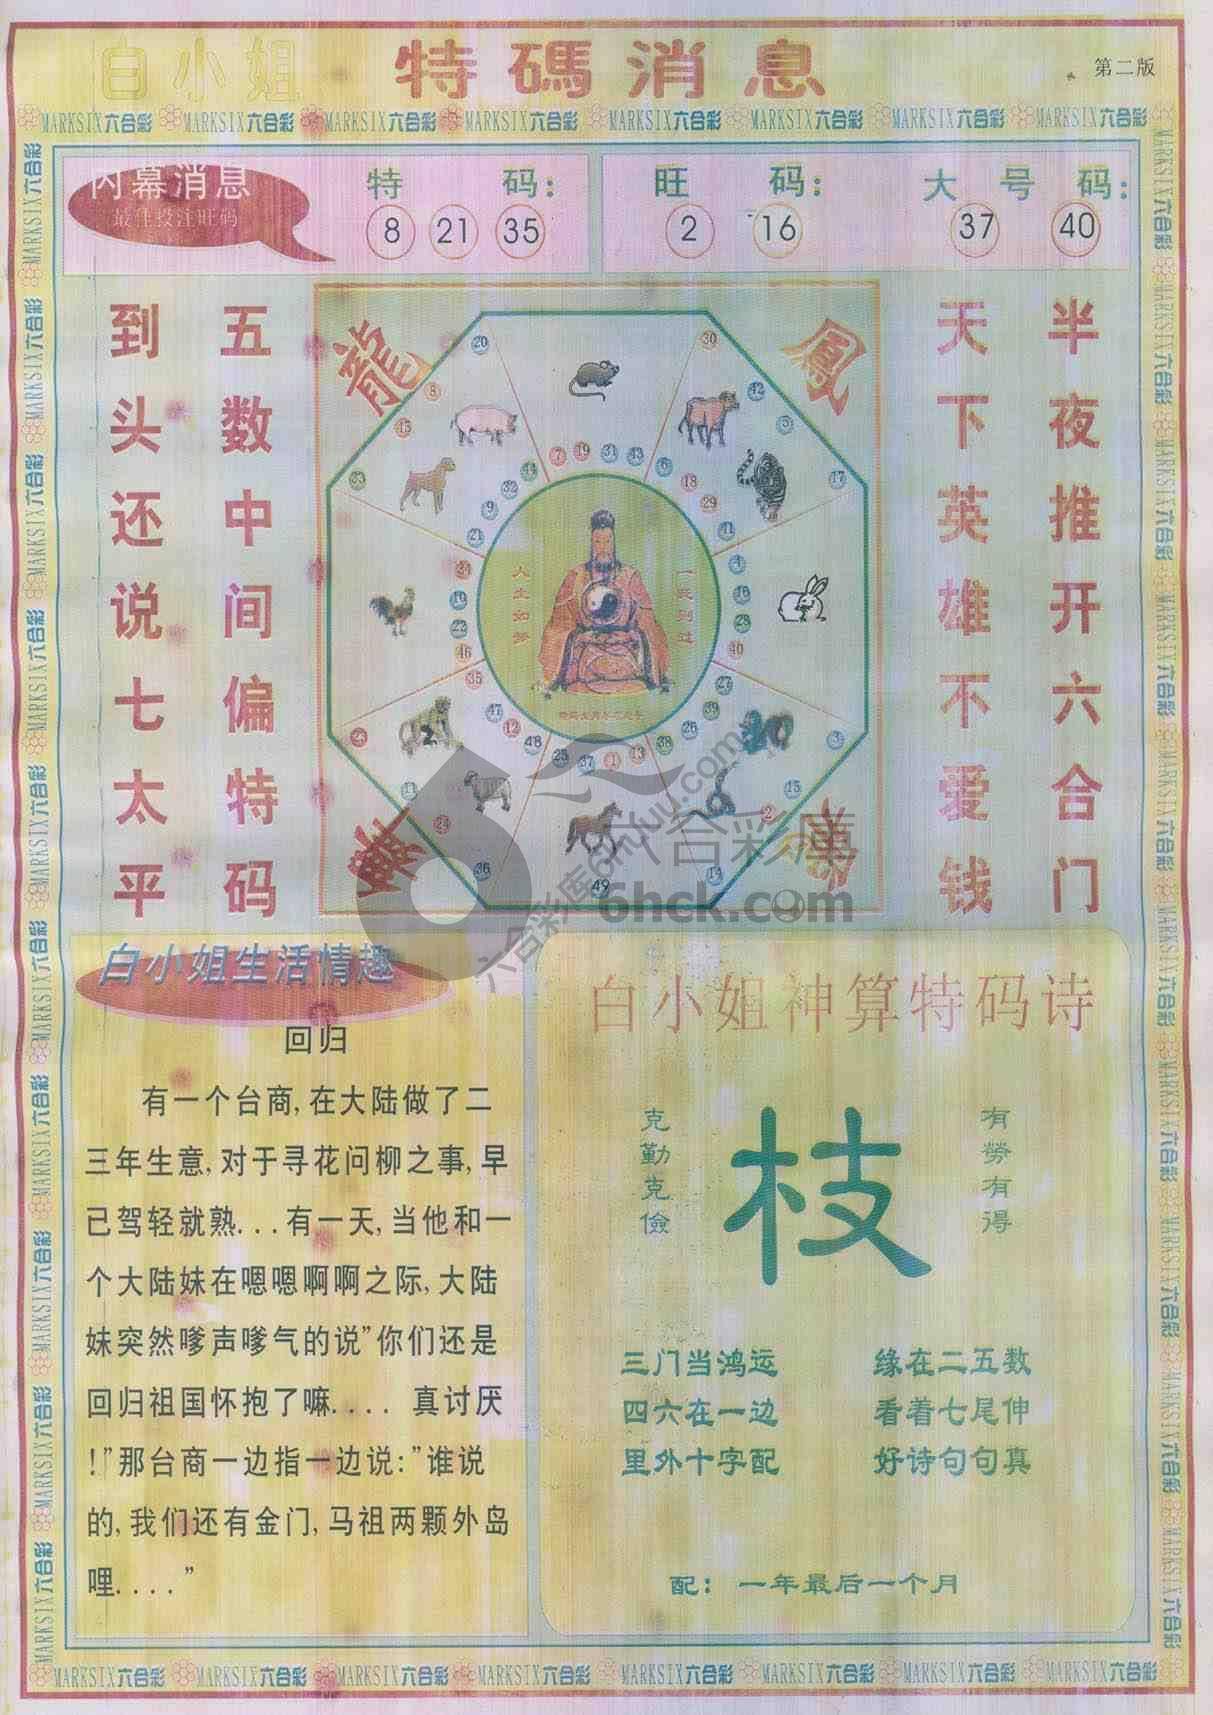 白小姐 特碼消息 第二版
MARKSIX六合彩 MARKSIX六合彩 MARKSIX六合彩 MARKSIX六合彩 MARKSIX六合彩 MARKSIX六合彩 MARKSIX六合彩
内幕消息
最佳投注旺码
特码:
8 21 35
旺码:
2 16
大号码:
37 40
半夜推开六合门
天下英雄不爱钱
五数中间偏特码
到头还说七太平
龍
鳳
人生如梦
49
六合彩庫
6hck.com
白小姐生活情趣
回归
有一个台商,在大陆做了二
三年生意,对于寻花问柳之事,早
已驾轻就熟...有一天,当他和一
个大陆妹在嗯嗯啊啊之际,大陆
妹突然嗲声嗲气的说"你们还是
回归祖国怀抱了嘛.... 真讨厌
!"那台商一边指一边说:"谁说
的,我们还有金门,马祖两颗外岛
哩...."
白小姐神算特码诗
有勞有得
枝
克勤克儉
三门当鸿运 缘在二五数
四六在一边 看着七尾伸
里外十字配 好诗句句真
配: 一年最后一个月
MARKSIX六合彩 MARKSIX六合彩 MARKSIX六合彩 MARKSIX六合彩 MARKSIX六合彩 MARKSIX六合彩 MARKSIX六合彩